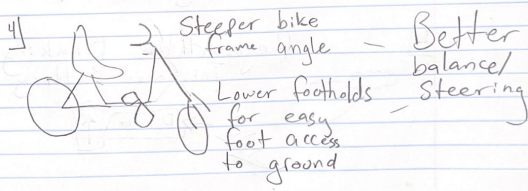 4)
Steeper bike
frame angle – Better
balance/
Steering
Lower footholds –
for easy
foot access
to ground